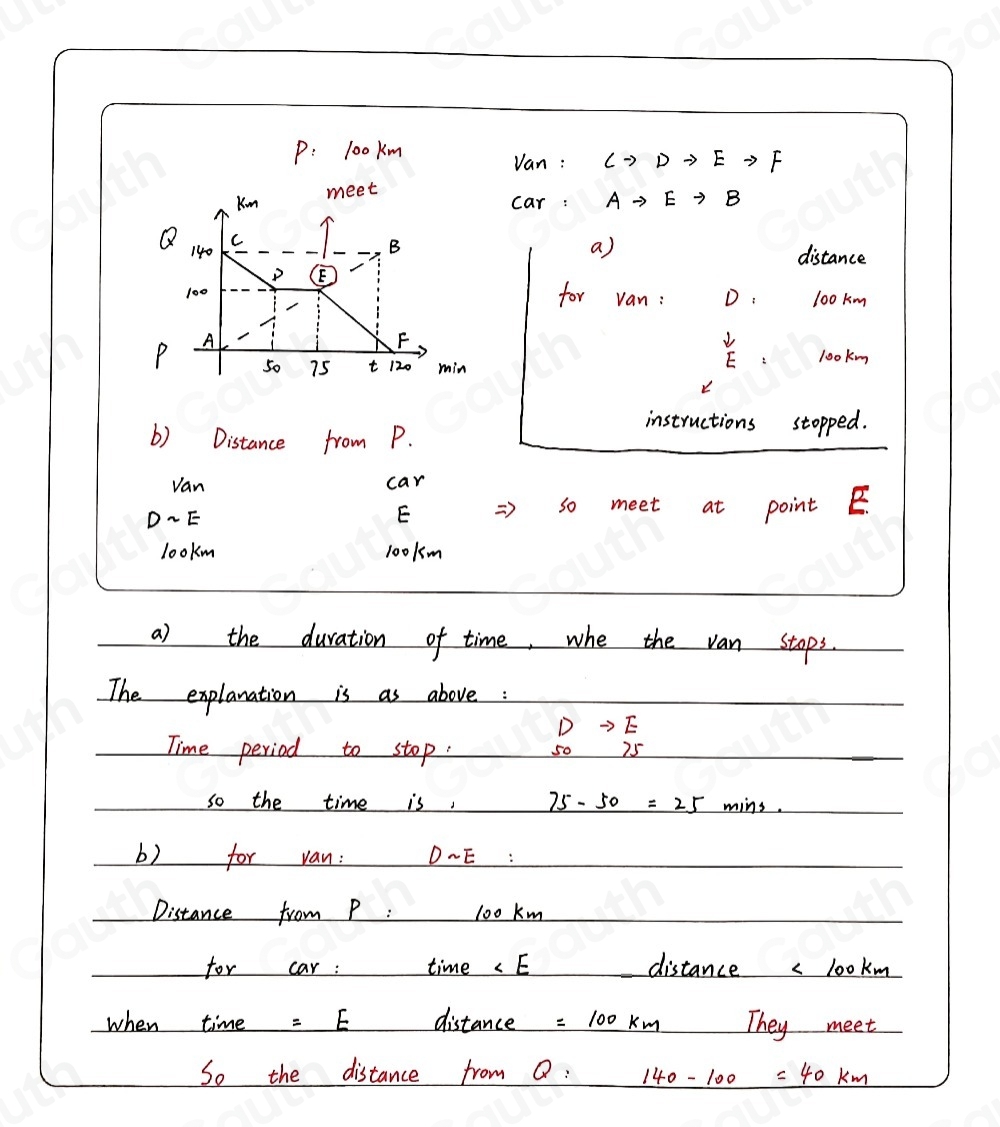 P: 100 km
meet
Km
Q 140 C B
D E
100
A F
P 50 75 t 120 min
Van : C → D → E → F
car : A → E → B
a)
distance
for van : D : 100 km
↓
E : 100 km
↙
instructions stopped.
b) Distance from P.
Van car
D ~ E E
100 km 100 km
=> so meet at point E.
a) the duration of time , whe the van stops.
The explanation is as above :
Time period to stop : D → E
50 75
so the time is , 75 - 50 = 25 mins .
b) for van : D ~ E :
Distance from P : 100 km
for car : time < E distance < 100 km
when time = E distance = 100 km They meet
So the distance from Q : 140 - 100 = 40 km
Gauth